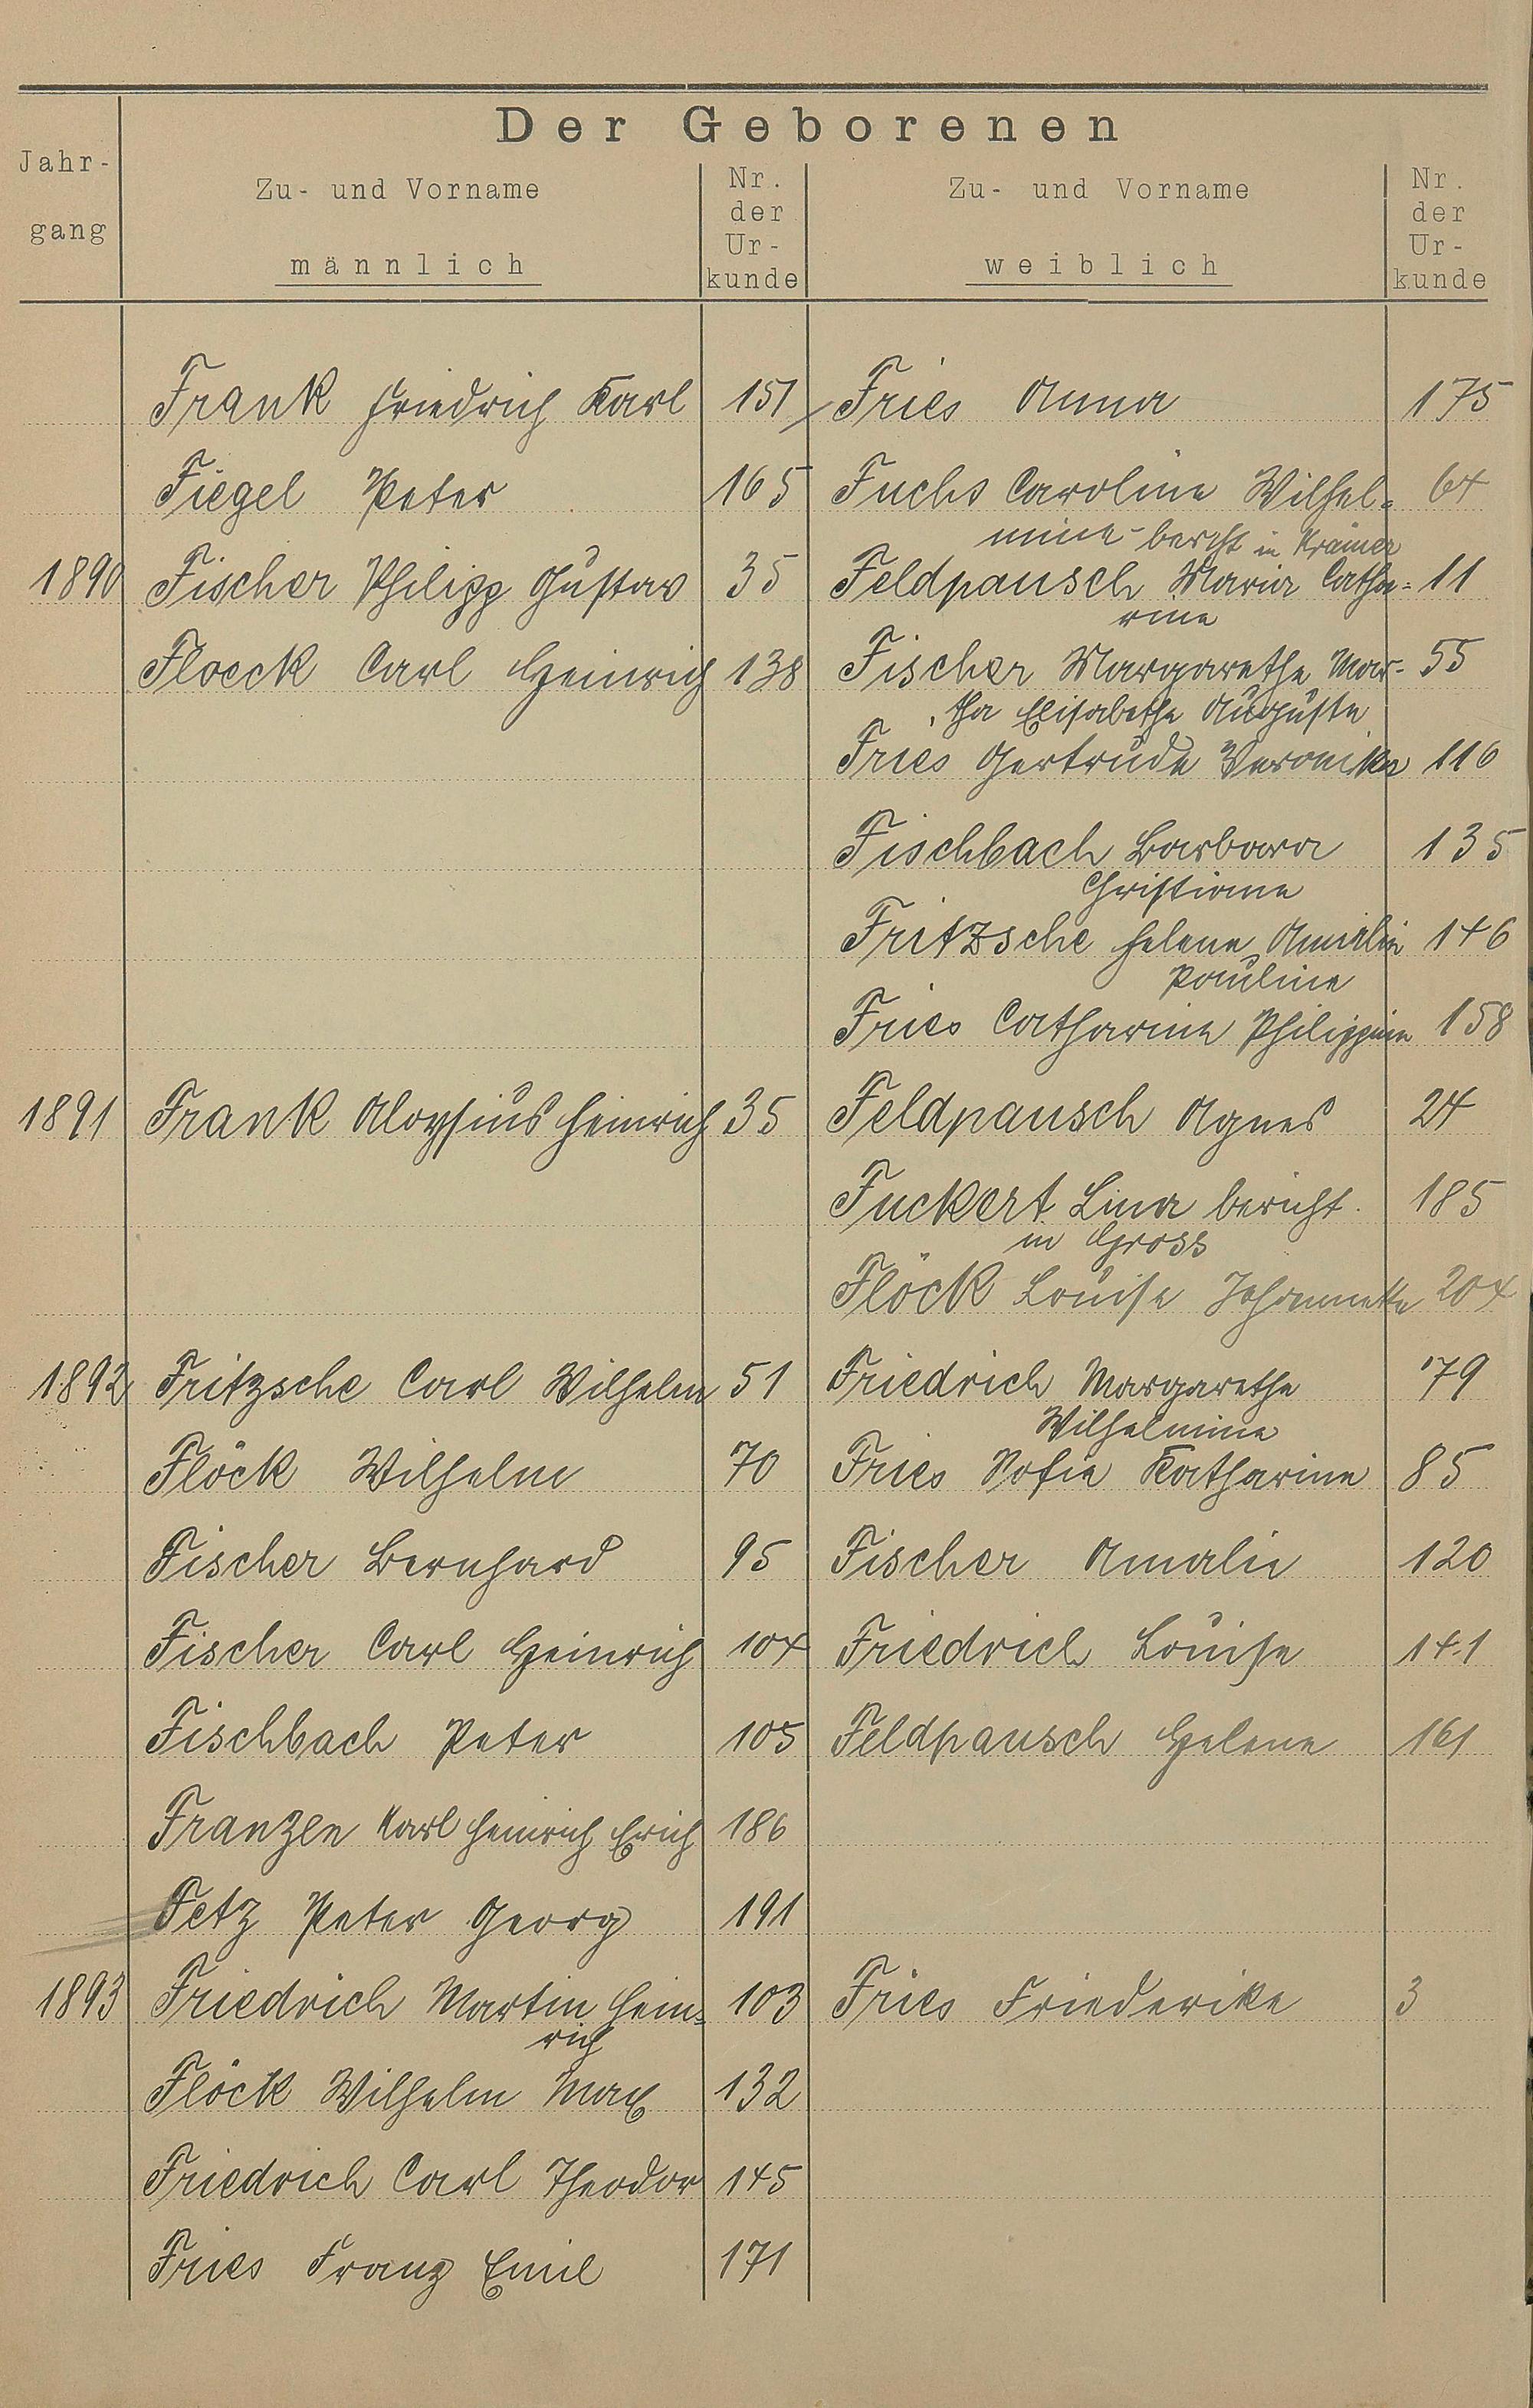 Der Geborenen
Jahr-
gang
Zu- und Vorname
männlich
Nr.
der
Ur-
kunde
Zu- und Vorname
weiblich
Nr.
der
Ur-
kunde
Frank Friedrich Karl 151 Fries Anna 175
Fiegel Peter 165 Fuchs Caroline Wilhel= 64
mine - bercht in Krämer
1890 Fischer Philipp Gustav 35 Feldpausch Maria Catha= 11
rine
Floeck Carl Heinrich 138 Fischer Margarethe Mar- 55
tha Elisabethe Auguste
Fries Gertrude Veronika 116
Fischbach Barbara 135
Christiane
Fritzsche Helene Amalie 146
Pauline
Fries Catharine Philippine 158
1891 Frank Aloysius Heinrich 35 Feldpausch Agnes 24
Fuckert Lina bericht. 185
in Gross
Flöck Louise Johannette 204
1892 Fritzsche Carl Wilhelm 51 Friedrich Margarethe 79
Wilhelmine
Flöck Wilhelm 70 Fries Sofie Katharine 85
Fischer Bernhard 95 Fischer Amalie 120
Fischer Carl Heinrich 104 Friedrich Louise 141
Fischbach Peter 105 Feldpausch Helene 161
Franzen Karl Heinrich Erich 186
Fetz Peter Georg 191
1893 Friedrich Martin Hein= 103 Fries Friederike 3
rich
Flöck Wilhelm Max 132
Friedrich Carl Theodor 145
Fries Franz Emil 171